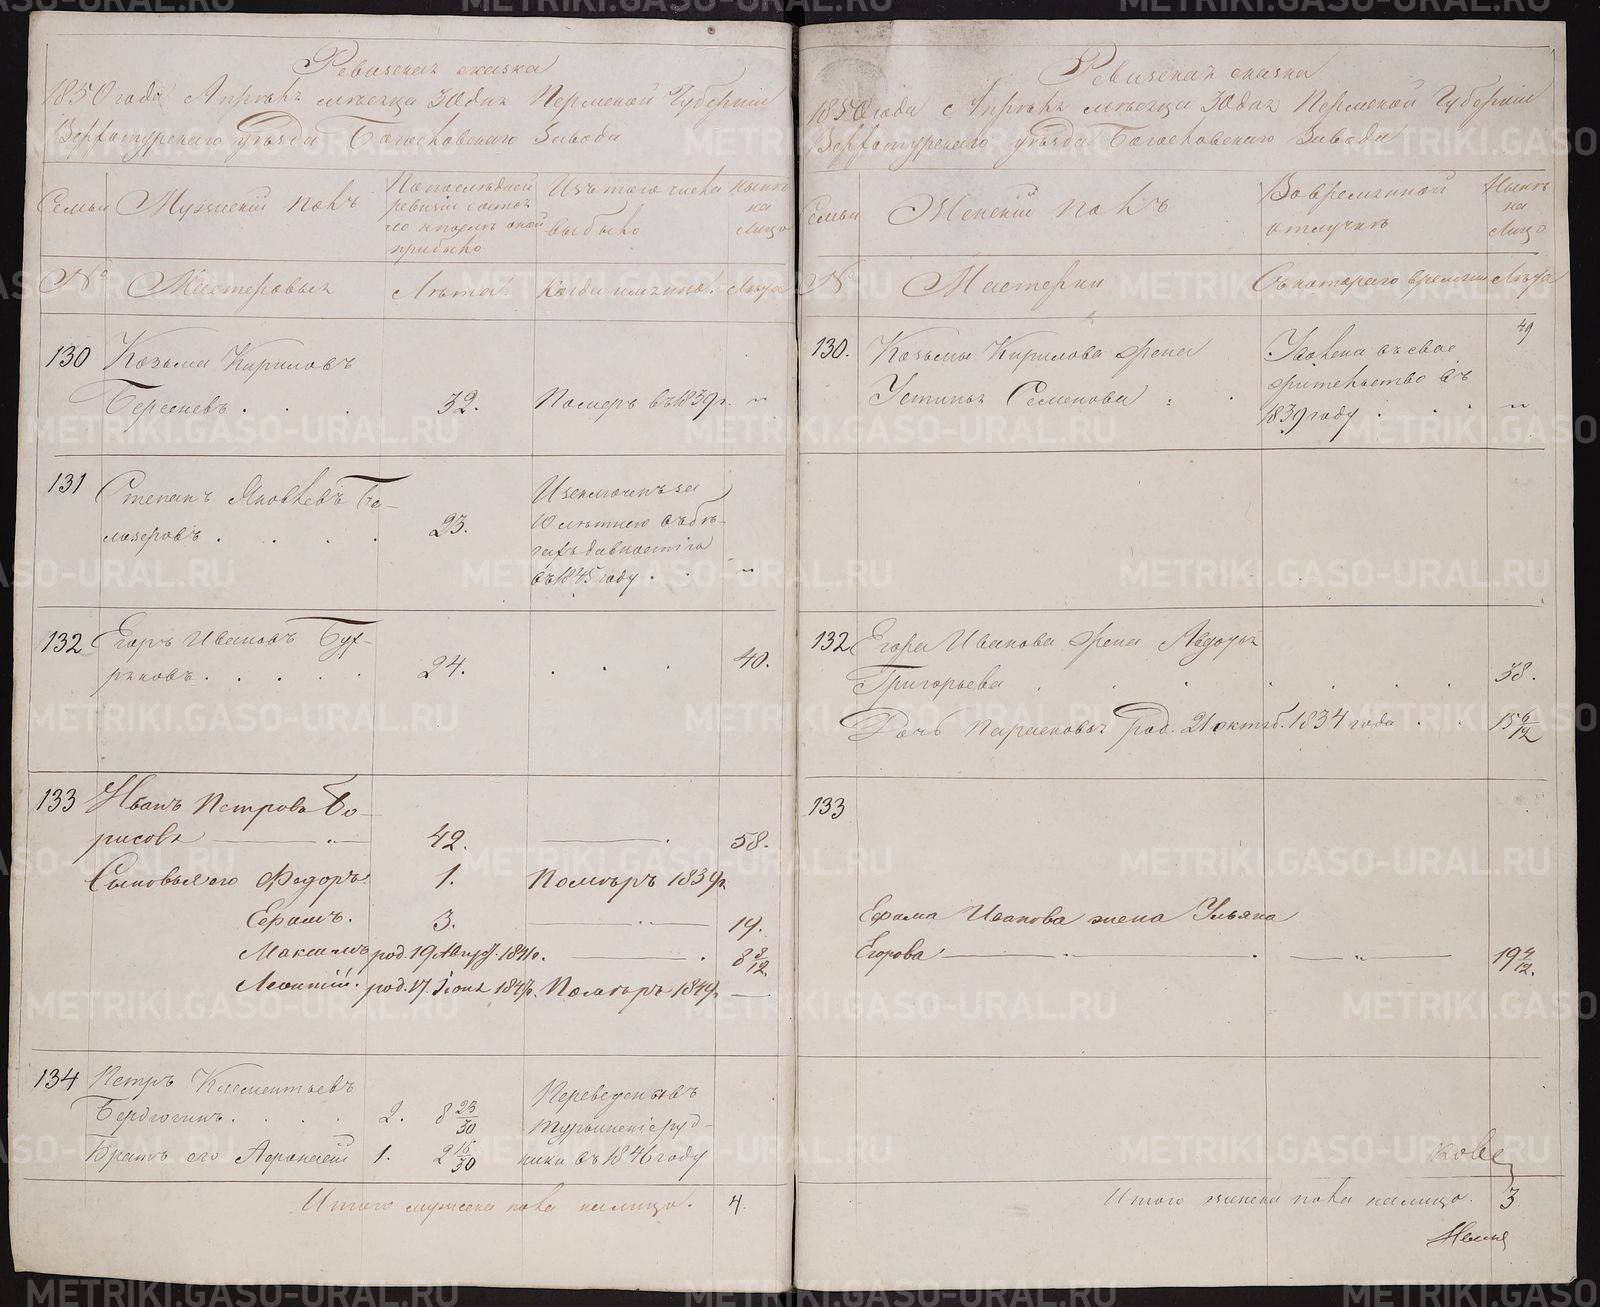 Ревизская сказка
1850 года Апрѣля мѣсяца 30 дня Пермской Губернiи
Верхотурскаго уѣзда Богословскаго Завода
Семьи
Мужескiй полъ
По последней
ревизiи состоя
ло и после оной
прибыло
Изъ того числа
выбыло
Нынѣ
на
Лицо
№
Мастеровыя
Лѣта.
Когда именно.
Лѣта
130
Козьма Кириловъ
Береснев
32.
Померъ въ 1839 г.
"
131
Степанъ Яковлевъ Бе-
лозеровъ
23.
Изключенъ за
10 летнею въ бѣ-
гахъ давностiю
въ 1845 году
"
132
Егоръ Ивановъ Бух-
ряковъ
24.
40.
133
Иванъ Петровъ Бо-
рисовъ
42.
58.
Сыновья его Федоръ.
1.
Помѣръ 1839 г
Ефамъ.
3.
19.
Максимъ род. 19 Август. 1841 г.
8 8/12
Леонтiй. род. 17 Iюня 1847 г. Помѣръ 1849 г
134
Петръ Клементьевъ
Бердюгинъ
2. 8 23/30
Переведены въ
Турьинскiе руд-
ники въ 1846 году
Братъ его Афонасiй 1. 2 16/30
Итого мужеска пола налицо. 4.
Ревизская сказка
1850 года Апрѣля мѣсяца 30 дня Пермской Губернiи
Верхотурскаго уѣзда Богословскаго Завода
Семьи
Женскiй полъ
Во временной
отлучкѣ
Нынѣ
на
Лицо
№
Мастерки
Съ котораго времени
Лѣта
130.
Козьмы Кирилова жена
Устинья Семенова
Уволена въ свое
жительство въ
1839 году
49
"
132
Егора Иванова жена Авдотья
Григорьева
38.
Дочь Парасковья род. 21 октяб. 1834 года
15 6/12
133
Ефама Иванова жена Ульяна
Егорова
19 4/12.
Итого женска пола налицо. 3
METRIKI.GASO-URAL.RU